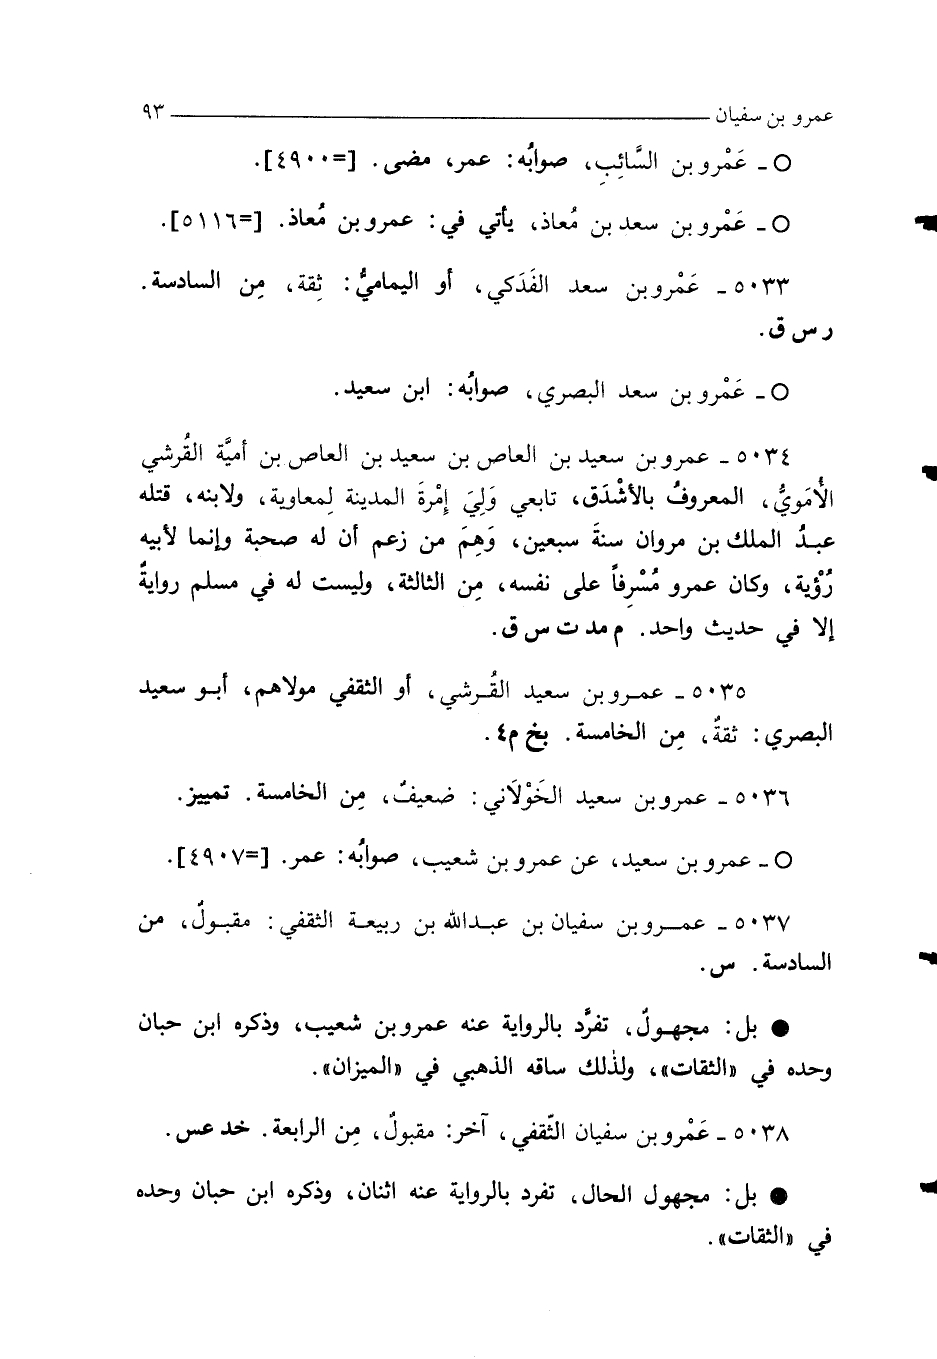 عمرو بن سفيان ٩٣
○ ـ عَمْرو بن السَّائِبِ، صوابُه: عمر، مضى. [=٤٩٠٠].
○ ـ عَمْرو بن سعد بن مُعاذ، يأتي في: عمرو بن مُعاذ. [=٥١١٦].
٥٠٣٣ ـ عَمْرو بن سعد الفَدَكي، أو اليماميُّ: ثِقة، مِن السادسة.
ر س ق.
○ ـ عَمْرو بن سعد البصري، صوابُه: ابن سعيد.
٥٠٣٤ ـ عمرو بن سعيد بن العاص بن سعيد بن العاص بن أميَّة القُرشي
الأُمَويُّ، المعروفُ بالأشْدَق، تابعي وَلِيَ إمْرةَ المدينة لِمعاوية، ولابنه، قتله
عبدُ الملك بن مروان سنةَ سبعين، وَهِمَ من زعم أن له صحبة وإنما لأبيه
رُؤْية، وكان عمرو مُسْرِفاً على نفسه، مِن الثالثة، وليست له في مسلم روايةٌ
إلا في حديث واحد. م مد ت س ق.
٥٠٣٥ ـ عمرو بن سعيد القُرشي، أو الثقفي مولاهم، أبو سعيد
البصري: ثقةٌ، مِن الخامسة. بخ م٤.
٥٠٣٦ ـ عمرو بن سعيد الخَوْلَاني: ضعيفٌ، مِن الخامسة. تمييز.
○ ـ عمرو بن سعيد، عن عمرو بن شعيب، صوابُه: عمر. [=٤٩٠٧].
٥٠٣٧ ـ عمرو بن سفيان بن عبدالله بن ربيعة الثقفي: مقبولٌ، من
السادسة. س.
● بل: مجهولٌ، تفرَّد بالرواية عنه عمرو بن شعيب، وذكره ابن حبان
وحده في «الثقات»، ولذلك ساقه الذهبي في «الميزان».
٥٠٣٨ ـ عَمْرو بن سفيان الثّقفي، آخر: مقبولٌ، مِن الرابعة. خد عس.
● بل: مجهول الحال، تفرد بالرواية عنه اثنان، وذكره ابن حبان وحده
في «الثقات».